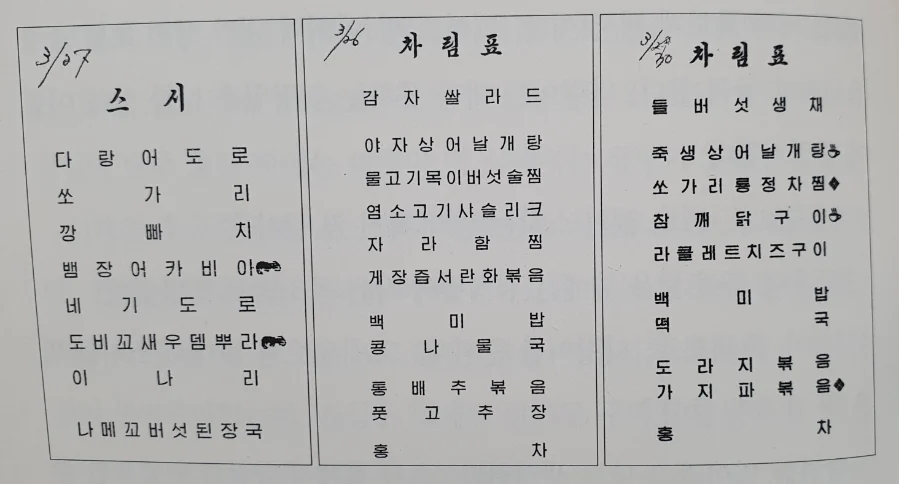 3/27
스시
다랑어도로
쏘가리
깡빠치
뱀장어카비아
네기도로
도비꼬새우뎀뿌라
이나리
나메꼬버섯된장국
3/26
차림표
감자쌀라드
야자상어날개탕
물고기목이버섯술찜
염소고기샤슬리크
자라함찜
게장즙서란화볶음
백미밥
콩나물국
통배추볶음
풋고추장
홍차
차림표
들버섯생채
죽생상어날개탕
쏘가리룡정차찜
참깨닭구이
라클레트치즈구이
백미밥
떡국
도라지볶음
가지파볶음
홍차